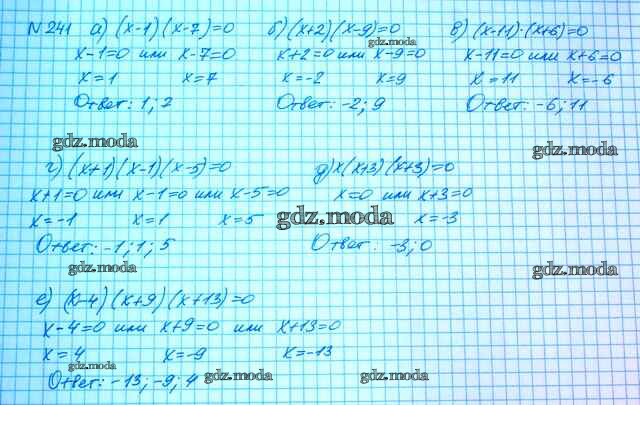 № 241 а) (x-1)(x-7)=0 б) (x+2)(x-9)=0 в) (x-11)·(x+6)=0
gdz.moda
x-1=0 или x-7=0 x+2=0 или x-9=0 x-11=0 или x+6=0
x=1 x=7 x=-2 x=9 x=11 x=-6
Ответ: 1; 7 Ответ: -2; 9 Ответ: -6; 11
gdz.moda gdz.moda
г) (x+1)(x-1)(x-5)=0 д) x(x+3)(x+3)=0
x+1=0 или x-1=0 или x-5=0 x=0 или x+3=0
x=-1 x=1 x=5 gdz.moda x=-3
Ответ: -1; 1; 5 Ответ: -3; 0
gdz.moda gdz.moda
е) (x-4)(x+9)(x+13)=0
x-4=0 или x+9=0 или x+13=0
x=4 x=-9 x=-13
gdz.moda gdz.moda gdz.moda
Ответ: -13; -9; 4